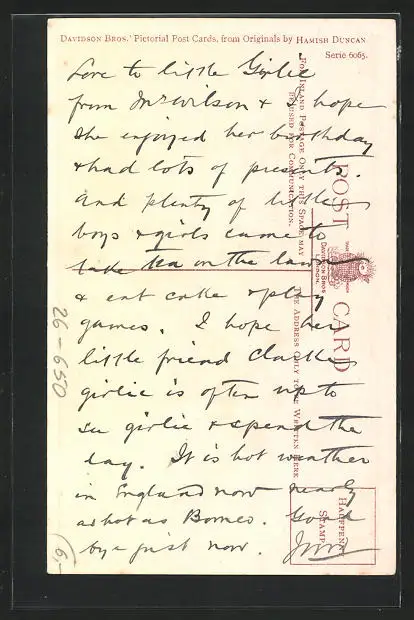 DAVIDSON BROS.' Pictorial Post Cards, from Originals by HAMISH DUNCAN
Serie 6065.
Love to little Girlie
from Mr Wilson & I hope
she enjoyed her birthday
& had lots of presents.
and plenty of little
boys & girls came to
take tea on the lawn
& eat cake & play
games. I hope her
little friend
girlie is often up to
see girlie & spend the
day. It is hot weather
in England now nearly
as hot as Borneo. Good
bye just now.
FOR INLAND POSTAGE ONLY THIS SPACE MAY
BE USED FOR COMMUNICATION.
POST CARD
DAVIDSON BROS
LONDON.
THE ADDRESS ONLY TO BE WRITTEN HERE
HALFPENNY
STAMP
26-650